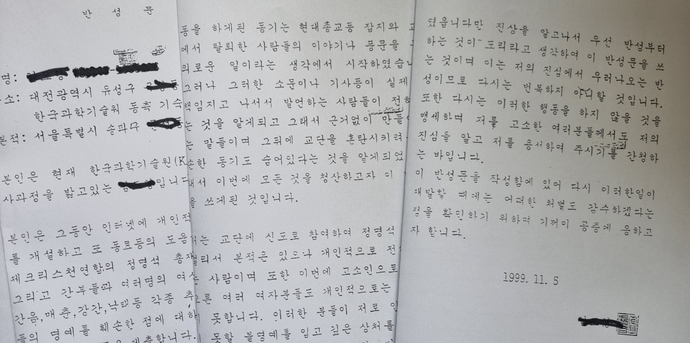 반 성 문
명:
소: 대전광역시 유성구
한국과학기술원 동측 기숙
본적: 서울특별시 송파구
본인은 현재 한국과학기술원(K
사과정을 밟고있는 입니다
본인은 그동안 인터넷에 개인적
를 개설하고 또 동료등의 도움
재크리스천연합의 정명석 총재
그리고 간부들과 여러명의 여
간음,매춘,강간,낙태등 각종 추
들의 명예를 훼손한 점에 대하
동을 하게된 동기는 현대종교등 잡지와
에서 탈퇴한 사람들의 이야기나 풍문을
의로운 일이라는 생각에서 시작하였습니
그러나 그러한 소문이나 기사등이 실제
책임지고 나서서 발언하는 사람들이 전
는 것을 알게되고 그래서 근거없이 만들
는 말들이며 그뒤에 교단을 혼란시키려
손한 동기도 숨어있다는 것을 알게되었
서 이번에 모든 것을 청산하고자 이
을 쓰게된 것입니다.
는 교단에 신도로 참여하여 정명석
본적은 있으나 개인적으로 전
사람이며 또한 이번에 고소인으로
여러 여자분들도 개인적으로는
못합니다. 이러한 분들이 저로 인
못할 불명예를 입고 깊은 상처를
였습니다만 진상을 알고나서 우선 반성부터
하는 것이 도리라고 생각하여 이 반성문을 쓰
는 것이며 이는 저의 진심에서 우러나오는 반
성이므로 다시는 번복하지 아니할 것입니다.
또한 다시는 이러한 행동을 하지 않을 것을
맹세하며 저를 고소한 여러분들께서도 저의
진심을 알고 저를 용서하여 주시기를 간청하
는 바입니다.
이 반성문을 작성함에 있어 다시 이러한일이
재발할 때에는 어떠한 처벌도 감수하겠다는
점을 확인하기 위하여 기꺼이 공증에 응하고
자 합니다.
1999. 11. 5